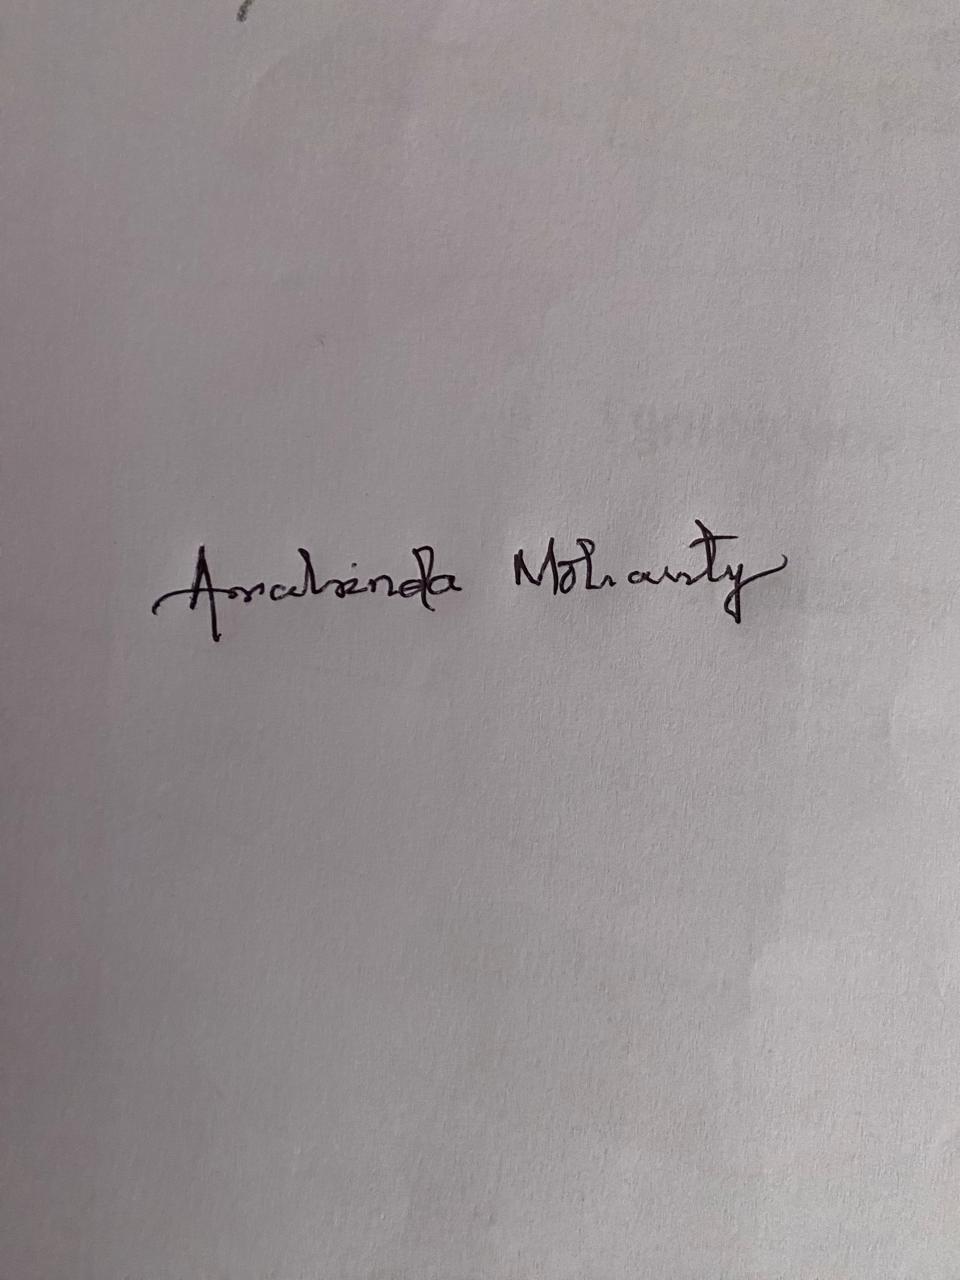 Arabinda Mohanty